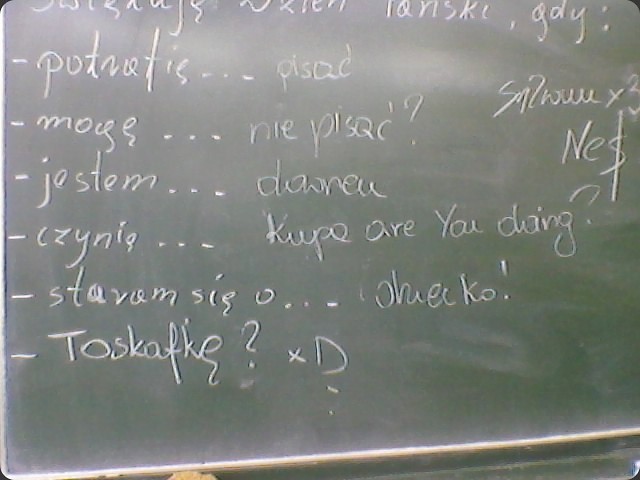 Świękuję Dzień Pański, gdy:
- potrafię... pisać
- mogę ... nie pisać?
- jestem ... downem
- czynię ... Kupa are You doing?
- staram się o... dziecko!
- Toskafkę? xD
x3
Neś